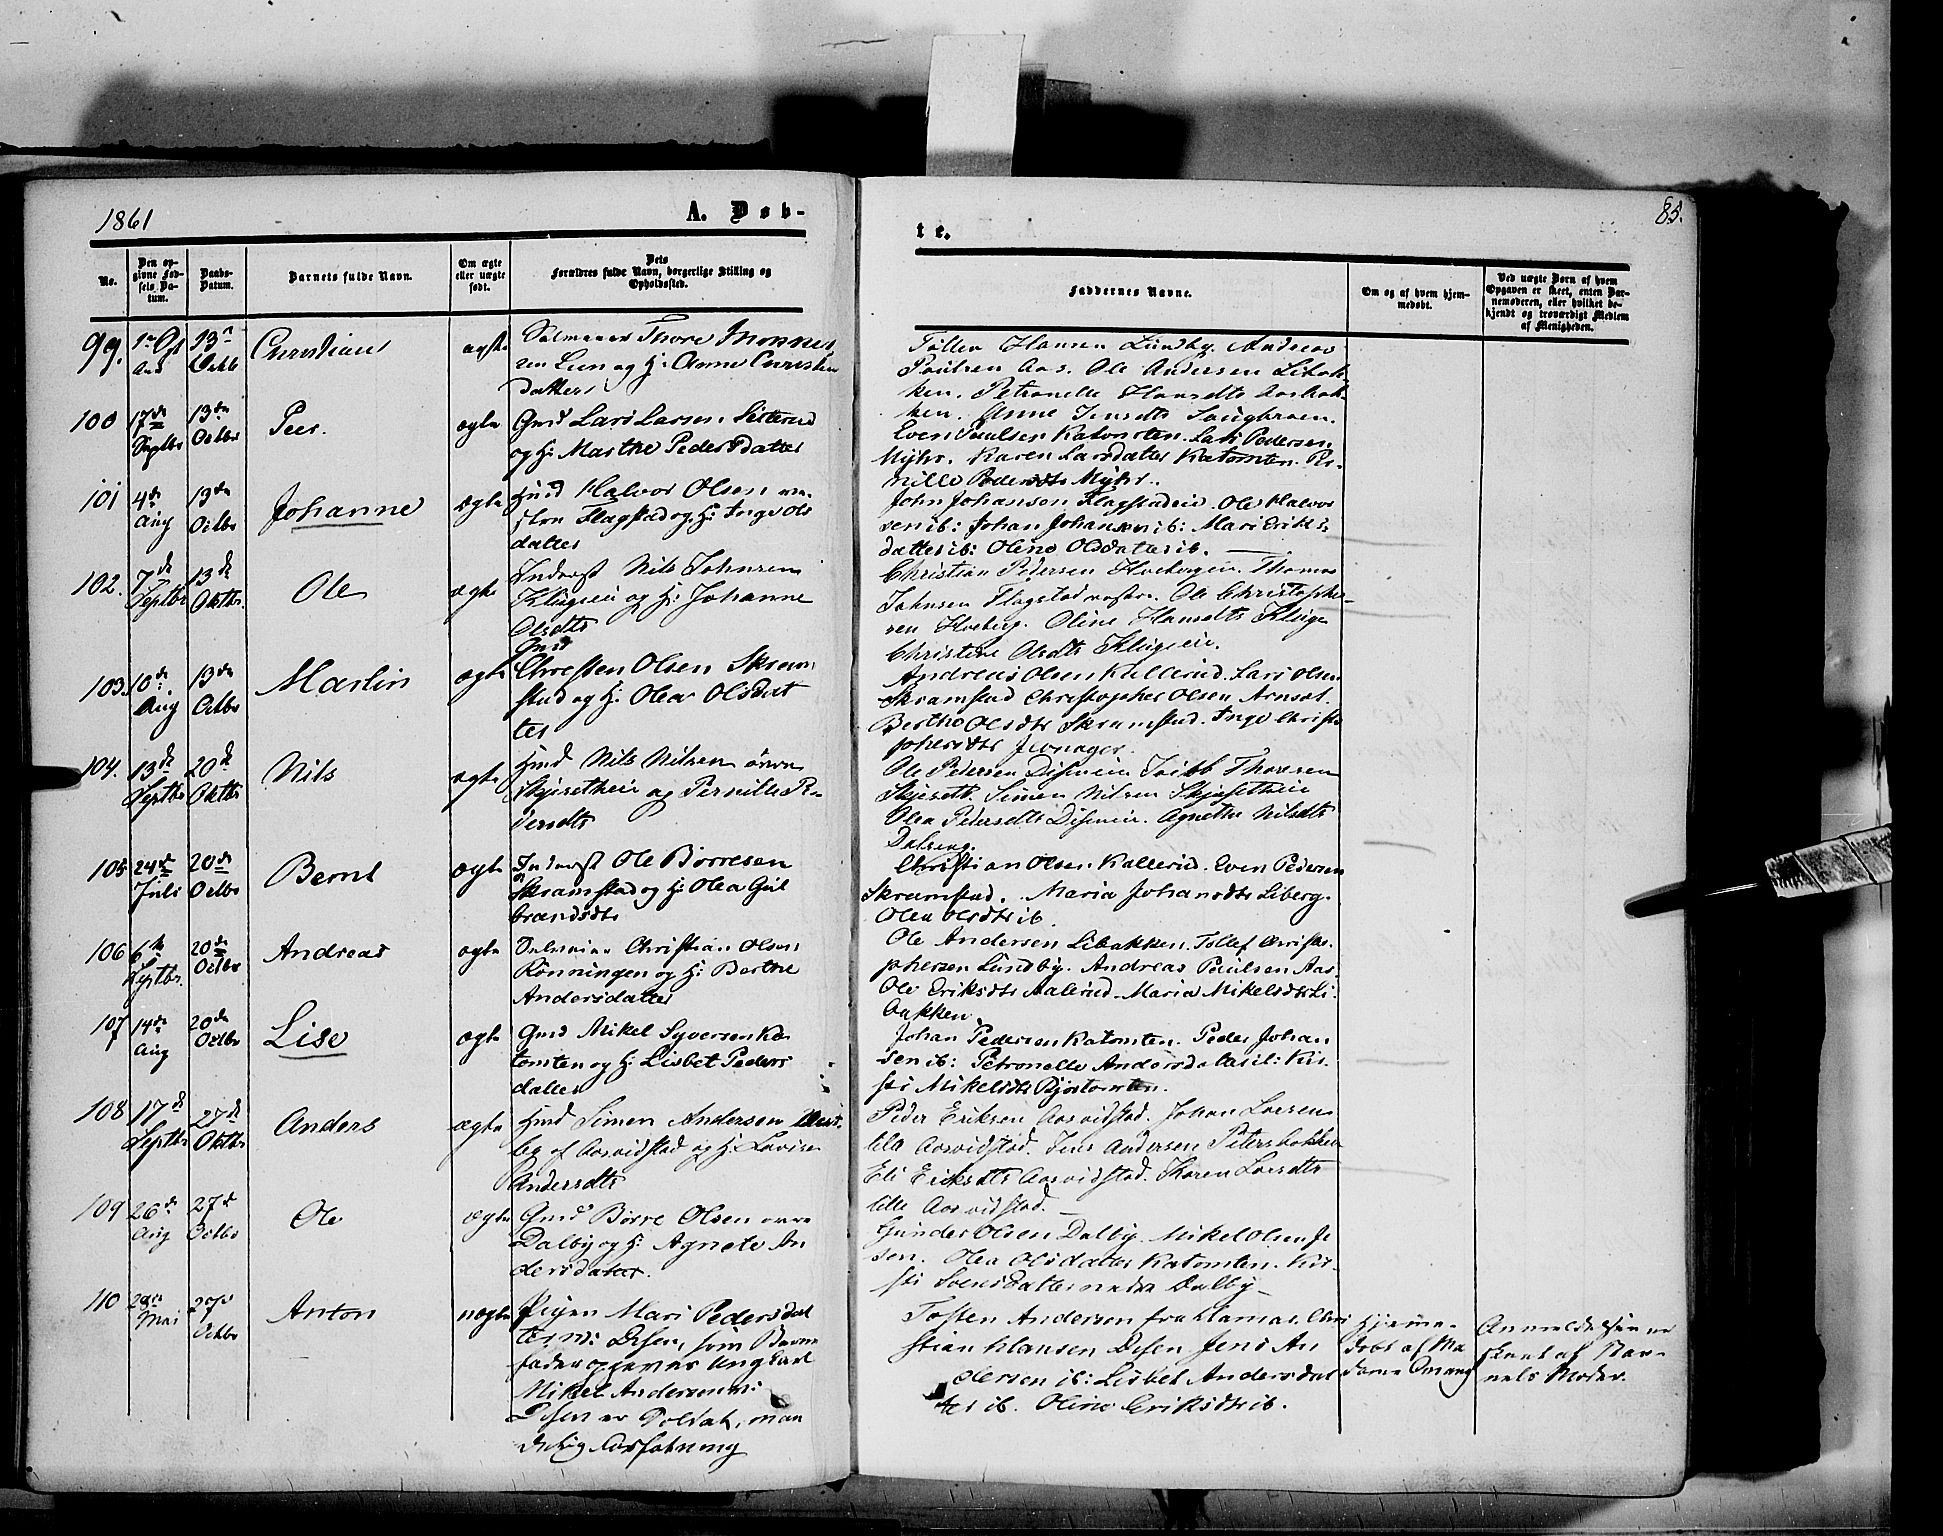 1861
A. Døb-
te.
85.
No.
Den op-
givne Fød-
sels Da-
tum.
Daabs-
Datum.
Barnets fulde Navn.
Om ægte
eller uægte
født.
Dets
Forældres fulde Navn, borgerlige Stilling og
Opholdssted.
Faddernes Navne.
Om og af hvem hjem-
medøbt.
Ved uægte Børn af hvem
Opgaven er skeet, enten Bar-
nemoderen, eller hvilket be-
kjendt og troværdigt Medlem
af Menigheden.
99.
13
Christian
ægte
Thore
og H: Anne Christen
datter
Hansen Lundby. Andreas
Poulsen Aas. Ole Andersen Libak-
ken. Petronelle Hansdtr
ken. Anne
100
17de
Septbr
13de
Octbr
Peer.
ægte
Gmd Lars Larsen
og H: Marthe Pedersdatter
Even Paulsen Katomten. Lars Pedersen
Myhr. Karen Larsdatter Katomten. Per-
nille Pedersdtr Myhr.
101
4de
Aug
13de
Octbr
Johanne
ægte
Husmd Halvor Olsen
Flagstad og H: Inge Ols
datter
John Johansen Flagstadeie. Ole Halvor
sen ib: Johan Johansen ib: Mari Eriks
datter ib: Oline Olsdatter ib.
102.
7de
Septbr
13de
Oktbr
Ole
ægte
Inderst Nils Johnsen
Klugeie og H: Johanne
Olsdtr
Christian Pedersen Thomas
Johnsen Flagstad Ole Christophe-
sen Hveberg. Oline Hansdtr Kluge
Christine Olsdtr Klugeie.
103.
10de
Aug
13de
Octbr
Martin
ægte
Gmd
Christen Olsen Skram
stad og H: Olea Olsdat
ter
Andreas Olsen Kallerud. Lars Olsen
Skramstad Christopher Olsen Arnset.
Berthe Olsdtr Skramstad. Inge Christo
phersdtr
104.
13de
Septbr
20de
Oktbr
Nils
ægte
Husmd Nils Nilsen
Skjesetheie og Pernille Pe-
dersdtr
Ole Pedersen Diseneie Thoresen
Skjeset. Simen Nilsen Skjesetheie
Olea Pedersdtr Diseneie. Agnethe Nilsdtr
Dalseng.
105
24de
Juli
20de
Octbr
Bernt
ægte
Inderst Ole Børresen
Skramstad og H: Olea Gul
brandsdtr
Christian Olsen Kallerud. Even Pedersen
Skramstad. Maria Johansdtr Liberg.
Olea Olsdtr ib.
106
6te
Septbr.
20de
Octbr
Andreas
ægte
Christian Olsen
Rønningen og H: Berthe
Andersdatter
Ole Andersen Libakken. Tollef Christo-
phersen Lundby. Andreas Paulsen Aas.
Eriksdtr Aalerud. Maria Mikelsdtr Li-
bakken
107
14de
Aug
20de
Octbr
Lise
ægte
Gmd Mikel Syversen Ka
tomten og H: Lisbet Peders
datter
Johan Pedersen Katomten. Peder Johan
sen ib: Petronelle Andersdatter ib: Kir-
sti Mikelsdtr
108
17de
Septbr
27de
Oktbr
Anders
ægte
Husmd Simen Andersen
Aasvidstad og H: Lovise
Andersdtr
Peder Eriksen Aasvidstad. Johan Larsen
lille Aasvidstad. Jens Andersen Petersbakken
Eli Eriksdtr Aasvidstad. Karen Larsdtr
lille Aasvidstad.
109
26de
Aug
27de
Octbr
Ole
ægte
Gmd Børre Olsen øvre
Dalby og H: Agnete An
dersdatter.
Gunder Olsen Dalby. Mikel Olsen
sen. Olea Olsdatter Katomten. Kir-
sti Svensdatter nedre Dalby
110
Mai
27de
Octbr
Anton
uægte
Pigen Mari Pedersdat
ter Disen, som Barne
fader opgiver Ungkarl
Mikel Andersen
Disen er Soldat,
Torsten Andersen fra Hamar. Chri
stian Hansen Disen Jens An
dersen ib: Lisbet Andersdat
ter ib. Oline Eriksdtr ib.
Hjemme-
døbt af Ma
dame
Anmeldelsen er
skeet af Bar-
nets Moder.